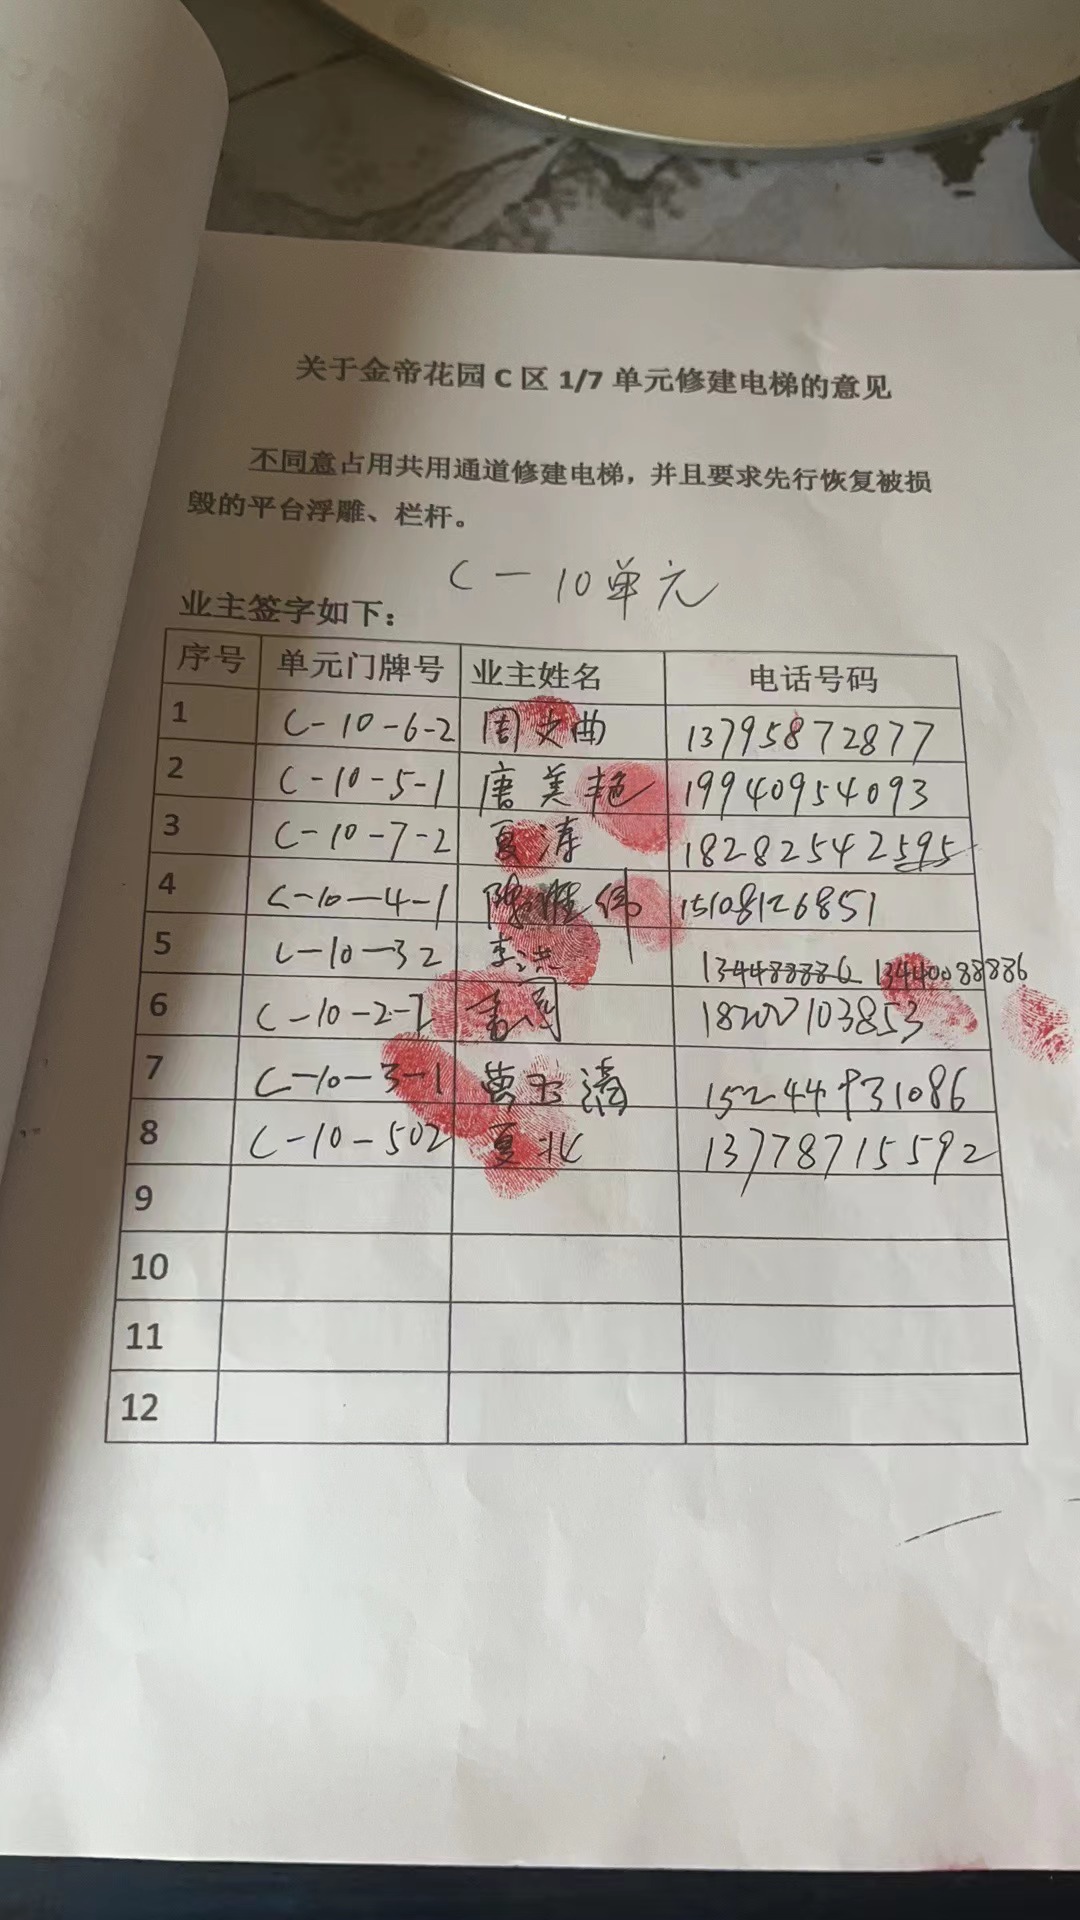 关于金帝花园 C 区 1/7 单元修建电梯的意见
不同意占用共用通道修建电梯，并且要求先行恢复被损
毁的平台浮雕、栏杆。
C－10单元
业主签字如下：
序号 单元门牌号 业主姓名 电话号码
1 C-10-6-2 周文曲 13795872877
2 C-10-5-1 唐美艳 19940954093
3 C-10-7-2 夏涛 18282542595
4 C-10-4-1 陈 伟 15108126851
5 C-10-32 李洪 13440088886
6 C-10-2-2
7 C-10-3-1 黄玉清 15244931086
8 C-10-502 夏北 13778715592
9
10
11
12